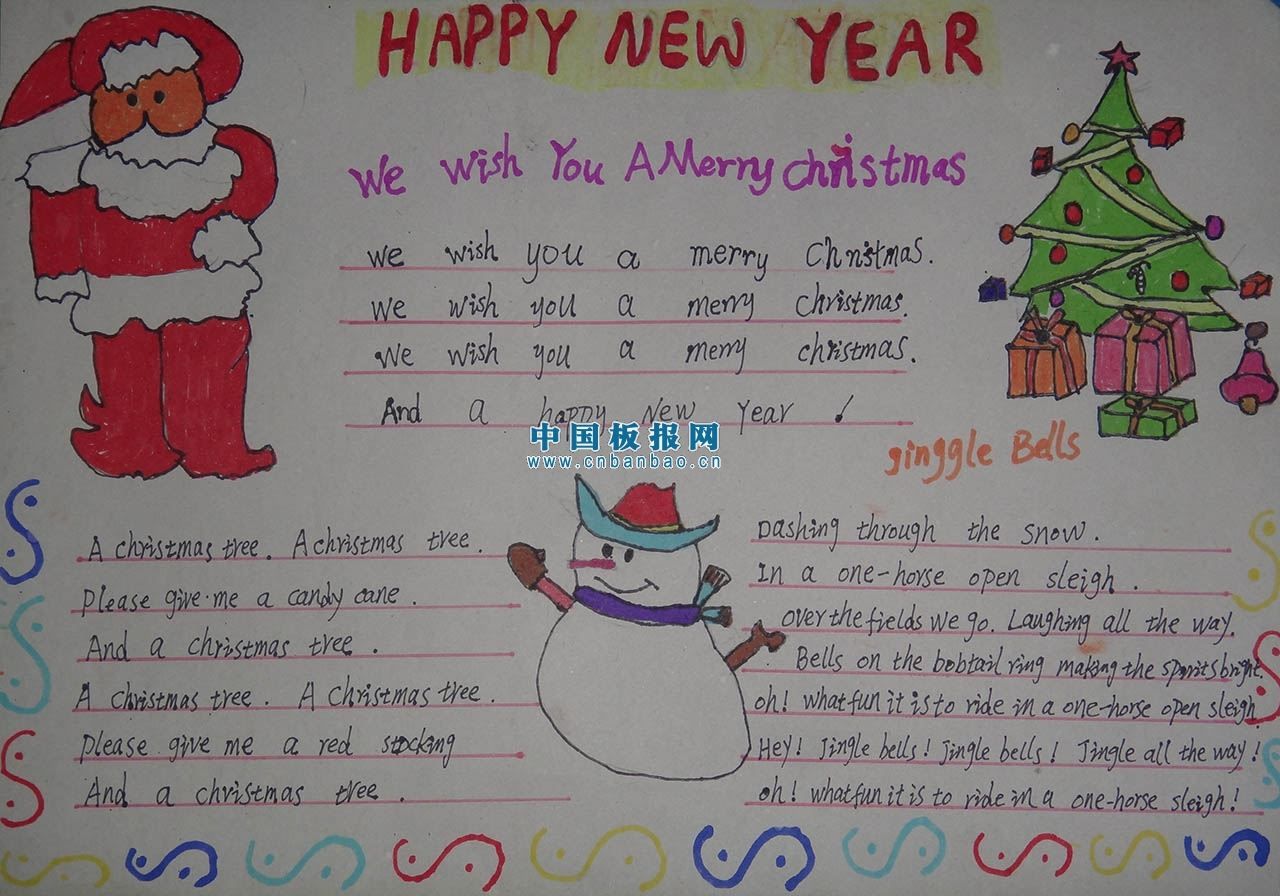 HAPPY NEW YEAR
We wish You A Merry christmas
we wish you a merry Christmas.
we wish you a merry christmas.
We wish you a merry christmas.
And a happy New Year !
中国板报网
www.cnbanbao.cn
ginggle Bells
A christmas tree. A christmas tree.
please give me a candy cane.
And a christmas tree.
A christmas tree. A christmas tree.
please give me a red stocking
And a christmas tree.
Dashing through the snow.
In a one-horse open sleigh.
over the fields we go. Laughing all the way.
Bells on the bobtail ring making the spirits bright.
oh! what fun it is to ride in a one-horse open sleigh
Hey! Jingle bells! Jingle bells! Jingle all the way!
oh! what fun it is to ride in a one-horse sleigh!